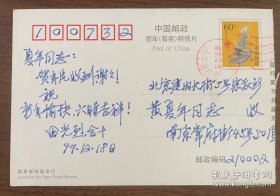 100732
中国邮政
贺年(有奖)明信片
Post of China
60分
夏年同志:
贺年片收到,谢谢!
祝
新年愉快,六时吉祥!
田光烈合十
99.12.18日
北京建内大街5号
黄夏年同志 收
南京
邮政编码 210002
国家邮政局发行
Issued by the State Postal Bureau